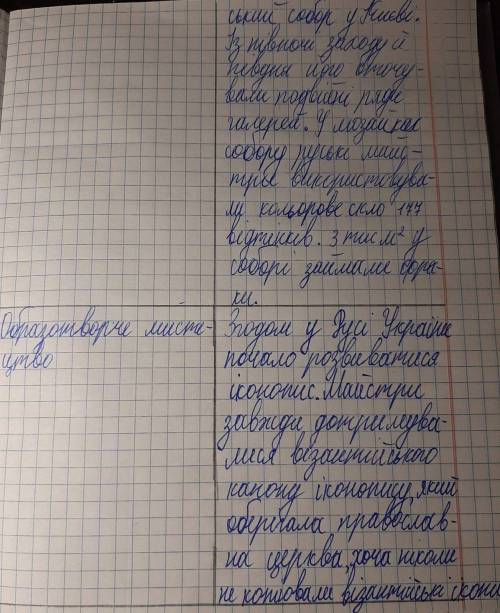 ський собор у Києві.
Із півночі заходу й
півдня його оточу-
вали подвійні ряди
галерей. У мозаїках
собору руські майс-
три використовува-
ли кольорове скло 177
відтінків. 3 тис м² у
соборі займали фрес-
ки.
Образотворче мисте-
цтво
Згодом у Русі Україні
почало розвиватися
іконопис. Майстри
завжди дотримува-
лися візантійського
канону іконопису, який
оберігала православ-
на церква, хоча ніколи
не копіювали візантійські ікони